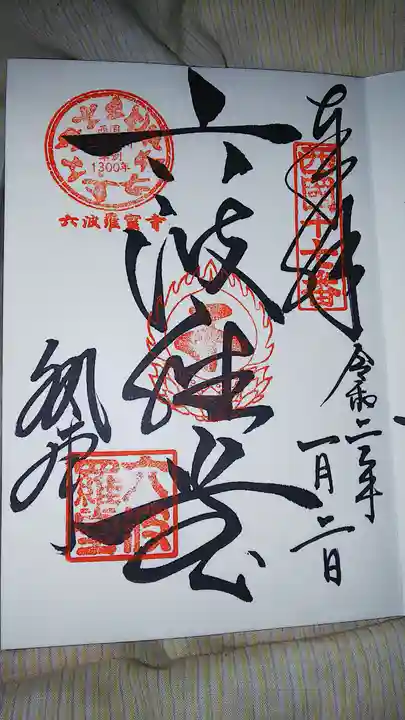 奉拝
西国十七番
令和二年
一月二日
六波羅堂
西国
草創
1300年
六波羅蜜寺
六波
羅蜜